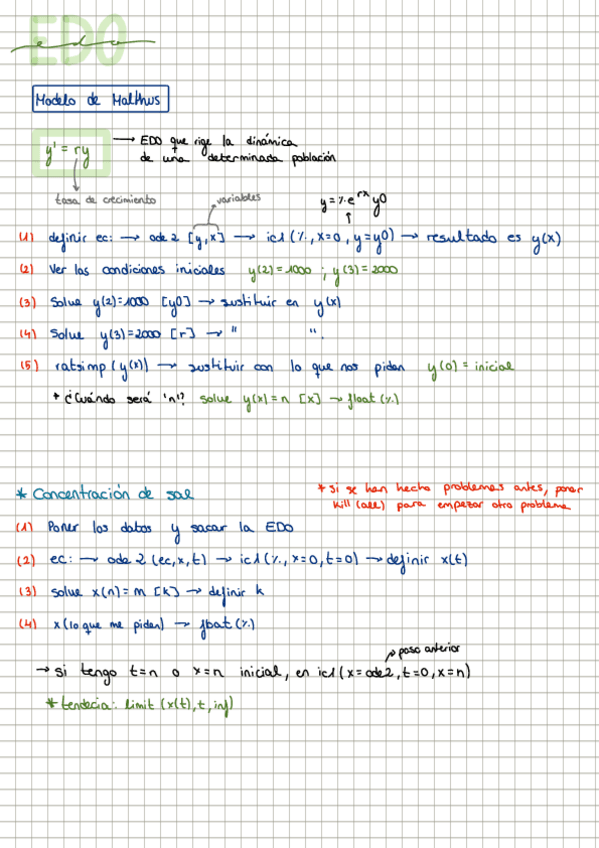 EDO
edo
Modelo de Malthus
y' = ry → EDO que rige la dinámica
de una determinada población
tasa de crecimiento
variables
y = %e^rx y0
(1) definir ec: → ode 2 [y,x] → ic1 (%, x=0, y=y0) → resultado es y(x)
(2) Ver las condiciones iniciales y(2)=1000 ; y(3)=2000
(3) Solve y(2)=1000 [y0] → sustituir en y(x)
(4) Solve y(3)=2000 [r] → " ".
(5) ratsimp (y(x)) → sustituir con lo que nos piden y(0) = inicial
* ¿Cuándo será 'n'? solve y(x)=n [x] → float (%)
* Concentración de sal
* si se han hecho problemas antes, poner
Kill (all) para empezar otro problema
(1) Poner los datos y sacar la EDO
(2) ec: → ode 2 (ec,x,t) → ic1 (%, x=0, t=0) → definir x(t)
(3) solve x(n)=m [k] → definir k
(4) x (lo que me piden) → float (%)
paso anterior
→ si tengo t=n o x=n inicial, en ic1 (x=ode2, t=0, x=n)
* tendecia: limit (x(t), t, inf)